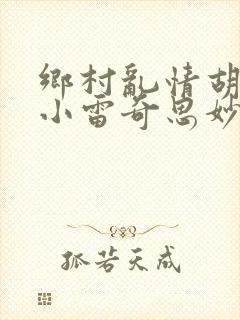 鄉村亂情胡
小雷奇思妙
孤若天成